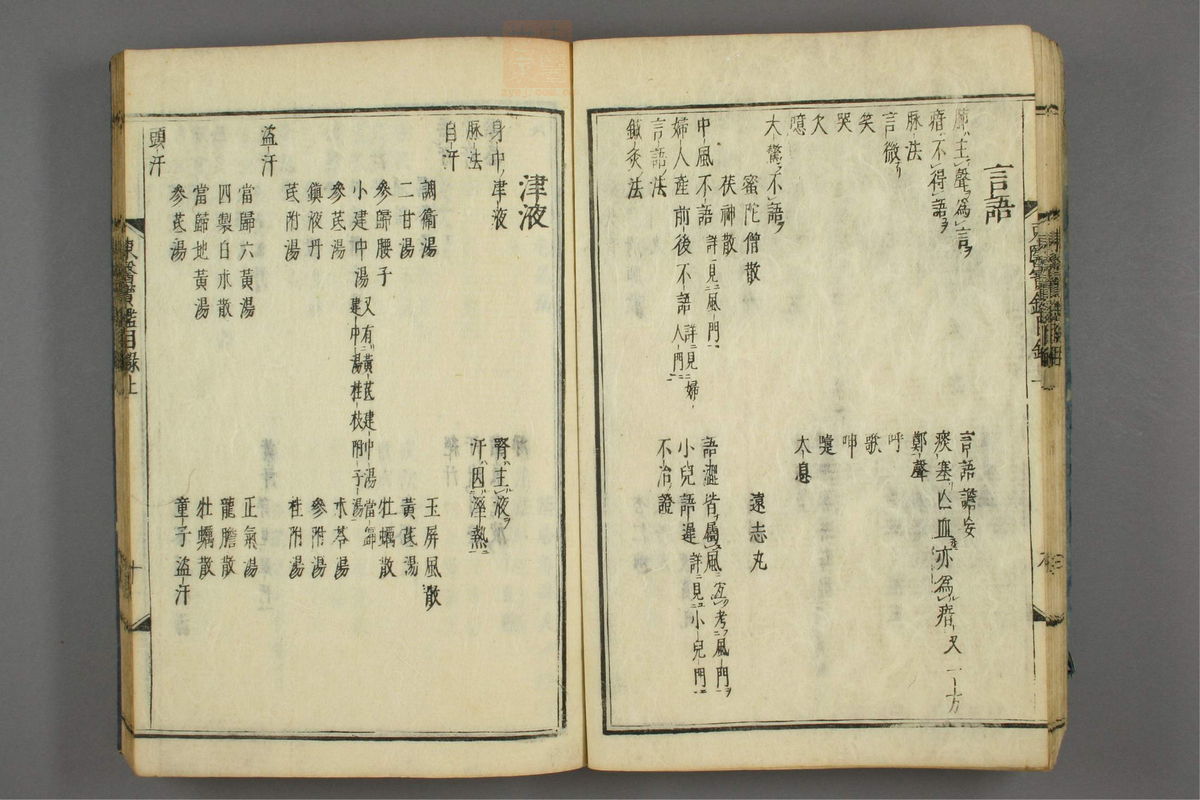 言語
肺主聲爲言
言語譫妄
瘖不得語
痰塞亡血亦爲瘖 又一方
脉法
鄭聲
言微
呼
笑
歌
哭
呻
欠
嚏
噫
太息
大驚不語
密陀僧散
遠志丸
茯神散
中風不語 詳見風門
語澀皆屬風 宜考風門
婦人産前後不語 詳見婦人門
小兒語遲 詳見小兒門
言語法
不治證
鍼灸法
津液
身中津液
腎主液
脉法
汗因溼熱
自汗
調衛湯
玉屏風散
二甘湯
黃芪湯
參歸腰子
牡蠣散
小建中湯 又有黃芪建中湯當歸建中湯桂枝附子湯
參芪湯
朮苓湯
鎭液丹
參附湯
芪附湯
桂附湯
盜汗
當歸六黃湯
正氣湯
四製白朮散
龍膽散
當歸地黃湯
牡蠣散
參芪湯
童子盜汗
頭汗
東醫寶鑑目錄上